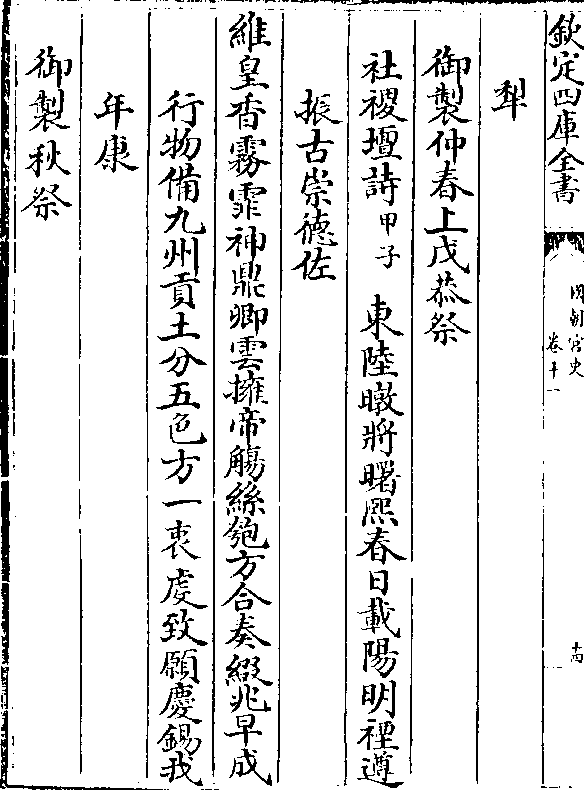 欽定四庫全書
國朝宮史
卷十一
十四
犁
御製仲春上戊恭祭
社稷壇詩甲子 東陸暾將曙熙春日載陽明禋遵
振古崇德佐
維皇香霧霏神鼎卿雲擁帝觴絲匏方合奏綴兆早成
行物備九州貢土分五色方一衷虔致願慶錫我
年康
御製秋祭